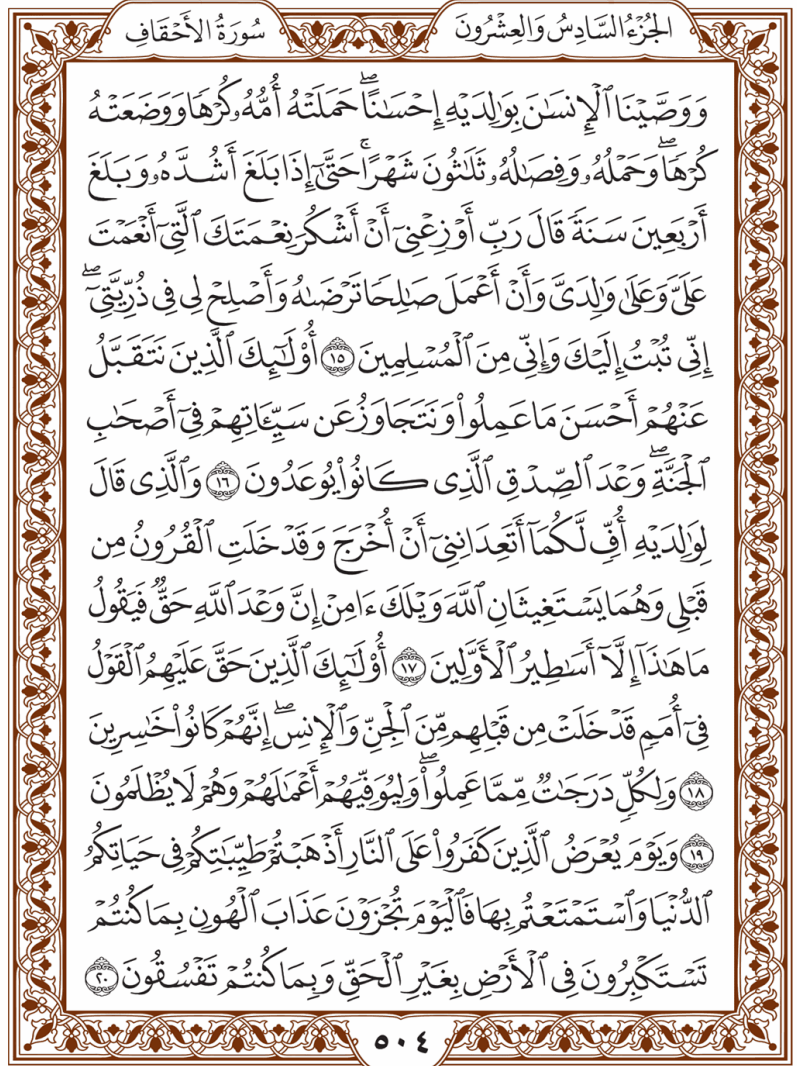 الجُزْءُ السَّادِسُ وَالعِشْرُونَ
سُورَةُ الأَحْقَافِ
وَوَصَّيْنَا ٱلْإِنسَٰنَ بِوَٰلِدَيْهِ إِحْسَٰنًاۖ حَمَلَتْهُ أُمُّهُۥ كُرْهًا وَوَضَعَتْهُ
كُرْهًاۖ وَحَمْلُهُۥ وَفِصَٰلُهُۥ ثَلَٰثُونَ شَهْرًاۚ حَتَّىٰٓ إِذَا بَلَغَ أَشُدَّهُۥ وَبَلَغَ
أَرْبَعِينَ سَنَةً قَالَ رَبِّ أَوْزِعْنِىٓ أَنْ أَشْكُرَ نِعْمَتَكَ ٱلَّتِىٓ أَنْعَمْتَ
عَلَىَّ وَعَلَىٰ وَٰلِدَىَّ وَأَنْ أَعْمَلَ صَٰلِحًا تَرْضَىٰهُ وَأَصْلِحْ لِى فِى ذُرِّيَّتِىٓۖ
إِنِّى تُبْتُ إِلَيْكَ وَإِنِّى مِنَ ٱلْمُسْلِمِينَ ١٥ أُو۟لَٰٓئِكَ ٱلَّذِينَ نَتَقَبَّلُ
عَنْهُمْ أَحْسَنَ مَا عَمِلُوا۟ وَنَتَجَاوَزُ عَن سَيِّـَٔاتِهِمْ فِىٓ أَصْحَٰبِ
ٱلْجَنَّةِۖ وَعْدَ ٱلصِّدْقِ ٱلَّذِى كَانُوا۟ يُوعَدُونَ ١٦ وَٱلَّذِى قَالَ
لِوَٰلِدَيْهِ أُفٍّ لَّكُمَآ أَتَعِدَانِنِىٓ أَنْ أُخْرَجَ وَقَدْ خَلَتِ ٱلْقُرُونُ مِن
قَبْلِى وَهُمَا يَسْتَغِيثَانِ ٱللَّهَ وَيْلَكَ ءَامِنْ إِنَّ وَعْدَ ٱللَّهِ حَقٌّ فَيَقُولُ
مَا هَٰذَآ إِلَّآ أَسَٰطِيرُ ٱلْأَوَّلِينَ ١٧ أُو۟لَٰٓئِكَ ٱلَّذِينَ حَقَّ عَلَيْهِمُ ٱلْقَوْلُ
فِىٓ أُمَمٍ قَدْ خَلَتْ مِن قَبْلِهِم مِّنَ ٱلْجِنِّ وَٱلْإِنسِۖ إِنَّهُمْ كَانُوا۟ خَٰسِرِينَ
١٨ وَلِكُلٍّ دَرَجَٰتٌ مِّمَّا عَمِلُوا۟ۖ وَلِيُوَفِّيَهُمْ أَعْمَٰلَهُمْ وَهُمْ لَا يُظْلَمُونَ
١٩ وَيَوْمَ يُعْرَضُ ٱلَّذِينَ كَفَرُوا۟ عَلَى ٱلنَّارِ أَذْهَبْتُمْ طَيِّبَٰتِكُمْ فِى حَيَاتِكُمُ
ٱلدُّنْيَا وَٱسْتَمْتَعْتُم بِهَا فَٱلْيَوْمَ تُجْزَوْنَ عَذَابَ ٱلْهُونِ بِمَا كُنتُمْ
تَسْتَكْبِرُونَ فِى ٱلْأَرْضِ بِغَيْرِ ٱلْحَقِّ وَبِمَا كُنتُمْ تَفْسُقُونَ ٢٠
٥٠٤